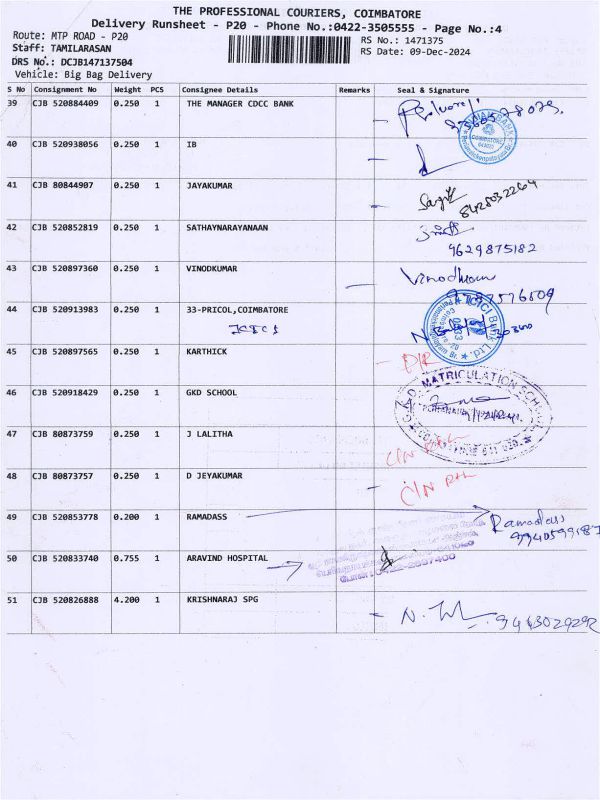 THE PROFESSIONAL COURIERS, COIMBATORE
Delivery Runsheet - P20 - Phone No.:0422-3505555 - Page No.:4
Route: MTP ROAD - P20
Staff: TAMILARASAN
DRS No.: DCJB147137504
Vehicle: Big Bag Delivery
RS No.: 1471375
RS Date: 09-Dec-2024
S No Consignment No Weight PCS Consignee Details Remarks Seal & Signature
39 CJB 520884409 0.250 1 THE MANAGER CDCC BANK
40 CJB 520938056 0.250 1 IB
41 CJB 80844907 0.250 1 JAYAKUMAR
42 CJB 520852819 0.250 1 SATHAYNARAYANAAN
9629875182
43 CJB 520897360 0.250 1 VINODKUMAR Vinodkumar
44 CJB 520913983 0.250 1 33-PRICOL,COIMBATORE
ICICI
ICICI Bank Ltd.
45 CJB 520897565 0.250 1 KARTHICK
46 CJB 520918429 0.250 1 GKD SCHOOL
G.K.D. MATRICULATION SCHOOL
47 CJB 80873759 0.250 1 J LALITHA
48 CJB 80873757 0.250 1 D JEYAKUMAR C/N
49 CJB 520853778 0.200 1 RAMADASS Ramadass
50 CJB 520833740 0.755 1 ARAVIND HOSPITAL
51 CJB 520826888 4.200 1 KRISHNARAJ SPG